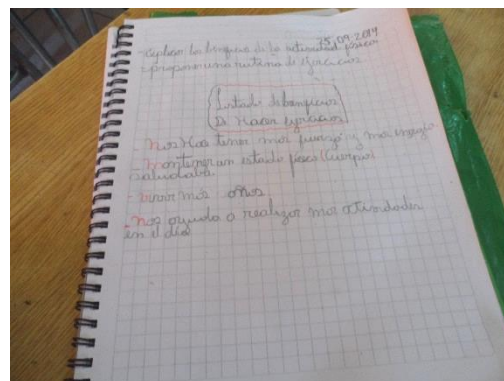 25-09-2014
-explican los beneficios de la actividad física
-proponen una rutina de ejercicios
Listado de beneficios
De Hacer ejercicios
-Nos Hace tener más fuerza y más energía
-mantener un estado físico (Cuerpo)
saludable.
-vivir más años
-Nos ayuda a realizar más actividades
en el día